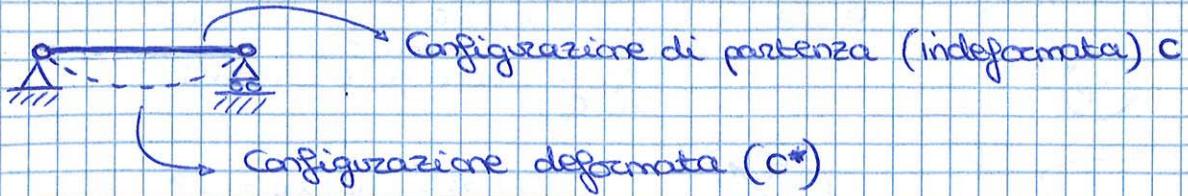 Configurazione di partenza (indeformata) C
Configurazione deformata (C*)